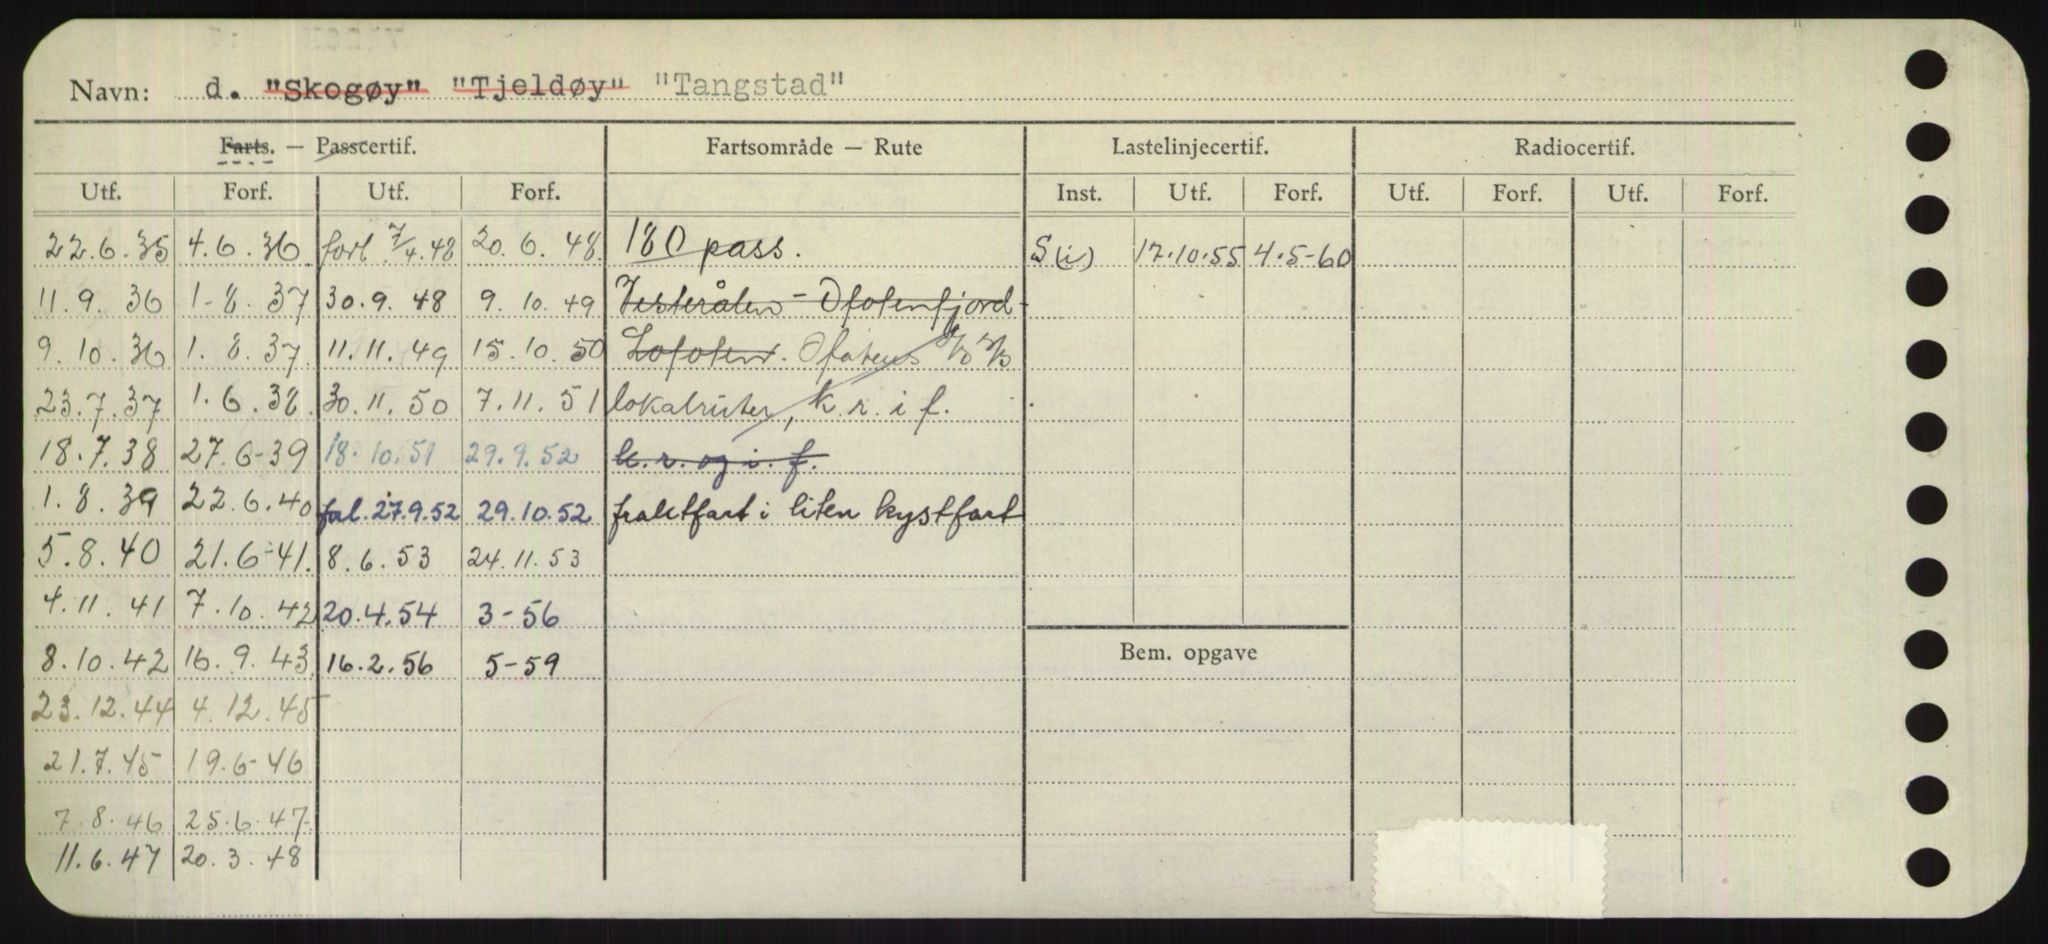 Navn: d. "Skogøy" "Tjeldøy" "Tangstad"
Farts. — Passcertif. Fartsområde — Rute Lastelinjecertif. Radiocertif.
Utf. Forf. Utf. Forf. Inst. Utf. Forf. Utf. Forf. Utf. Forf.
22.6.35 4.6.36 forl 7/4.48 20.6.48 180 pass. S(i) 17.10.55 4.5-60
11.9.36 1-8.37 30.9.48 9.10.49 Vesterålen - Ofotenfjord-
9.10.36 1.8.37 11.11.49 15.10.50 Lofoten. Ofotens
23.7.37 1.6.38 30.11.50 7.11.51 lokalruter, k.r. i f.
18.7.38 27.6-39 18.10.51 29.9.52 k.r. og i. f.
1.8.39 22.6.40 fol. 27.9.52 29.10.52 fraktfart i liten kystfart
5.8.40 21.6-41. 8.6.53 24.11.53
4.11.41 7.10.42 20.4.54 3-56
8.10.42 16.9.43 16.2.56 5-59 Bem. opgave
23.12.44 4.12.45
21.7.45 19.6-46
7.8.46 25.6.47
11.6.47 20.3.48